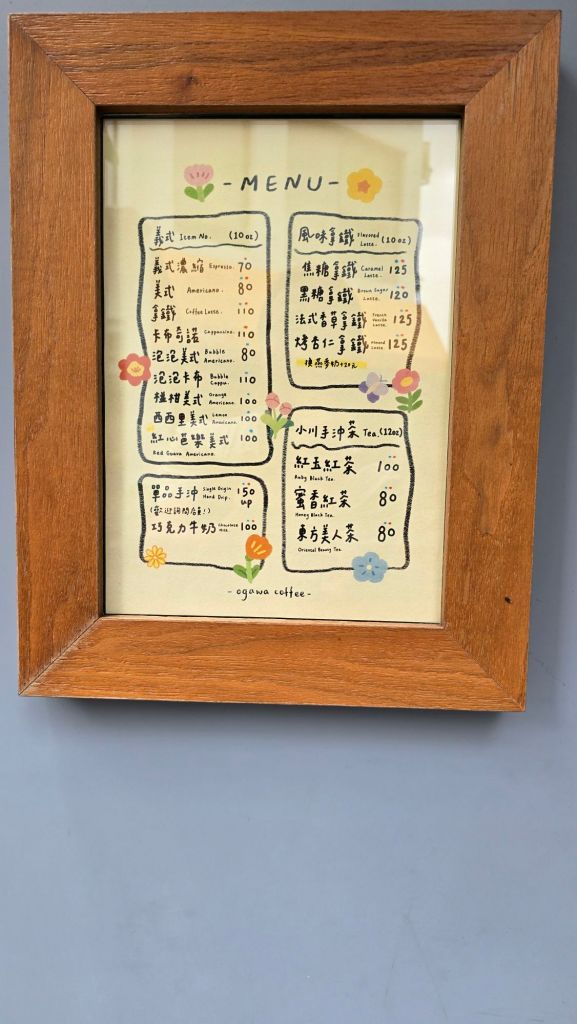 - MENU -
義式 Item No. (10oz)
義式濃縮 Espresso. 70
美式 Americano. 80
拿鐵 Coffee Latte. 110
卡布奇諾 Cappuccino. 110
泡泡美式 Bubble Americano. 80
泡泡卡布 Bubble Cappu. 110
柑美式 Orange Americano. 100
西西里美式 Lemon Americano. 100
紅心芭樂美式 100
Red Guava Americano.
單品手沖 Single Origin Hand Drip. 150 up
(歡迎詢問店員!)
巧克力牛奶 Chocolate Milk. 100
風味拿鐵 Flavored Latte. (10oz)
焦糖拿鐵 Caramel Latte. 125
黑糖拿鐵 Brown Sugar Latte. 120
法式香草拿鐵 French Vanilla Latte. 125
烤杏仁拿鐵 Almond Latte. 125
換燕麥奶+20元
小川手沖茶 Tea.(12oz)
紅玉紅茶 100
Ruby Black Tea.
蜜香紅茶 80
Honey Black Tea.
東方美人茶 80
Oriental Beauty Tea.
- ogawa coffee -